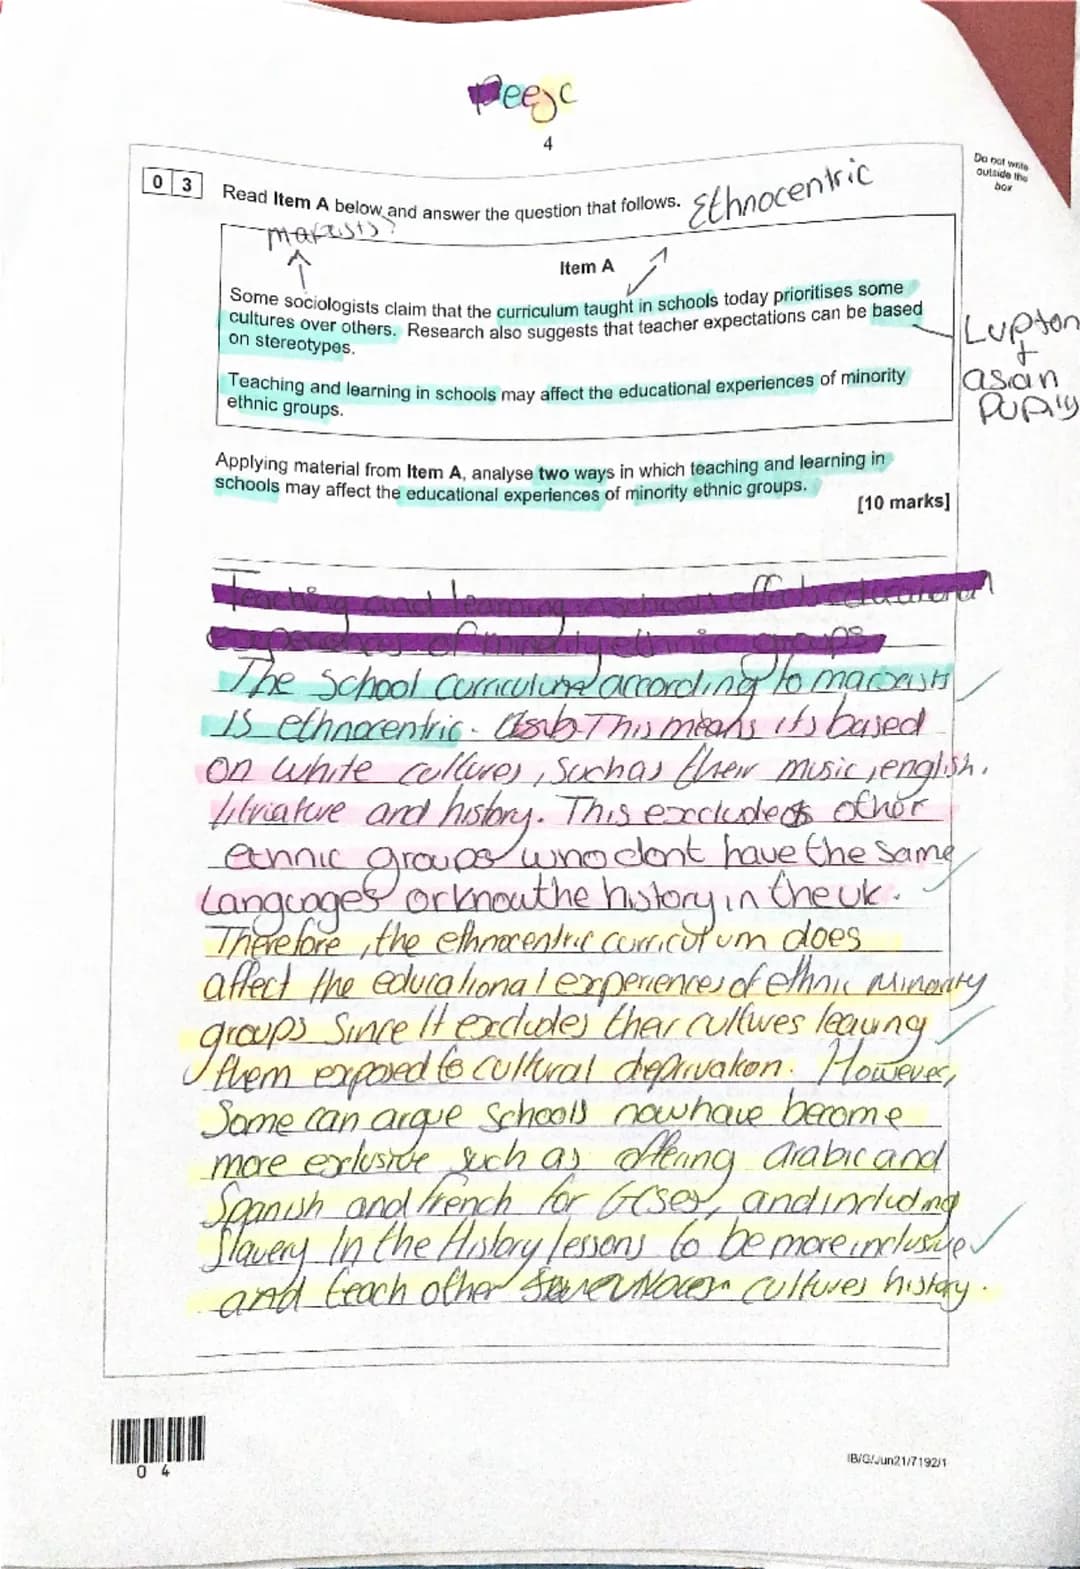 Peejc
4
Do not write
outside the
box
0 3 Read Item A below and answer the question that follows.
Ethnocentric
marxists?
Item A
Some sociologists claim that the curriculum taught in schools today prioritises some
cultures over others. Research also suggests that teacher expectations can be based
on stereotypes.
Lupton
+
asian
pupils
Teaching and learning in schools may affect the educational experiences of minority
ethnic groups.
Applying material from Item A, analyse two ways in which teaching and learning in
schools may affect the educational experiences of minority ethnic groups.
[10 marks]
Teaching and learning in schools effects educational
experiences of minority ethnic groups
The School curriculum according to marxists
is ethnocentric. This means its based
on white cultures, such as their music, english,
and history. This excludes other
ethnic groups who dont have the same
languages or know the history in the uk.
Therefore, the ethnocentric curriculum does
affect the educational experiences of ethnic minority
groups since it excludes their cultures leaving
them exposed to cultural deprivation. However,
Some can argue schools now have become
more exlusive such as offering arabic and
Spanish and french for GCSEs, and including
Slavery in the History lessons to be more inclusive
and teach other cultures history.
0 4
IB/G/Jun21/7192/1